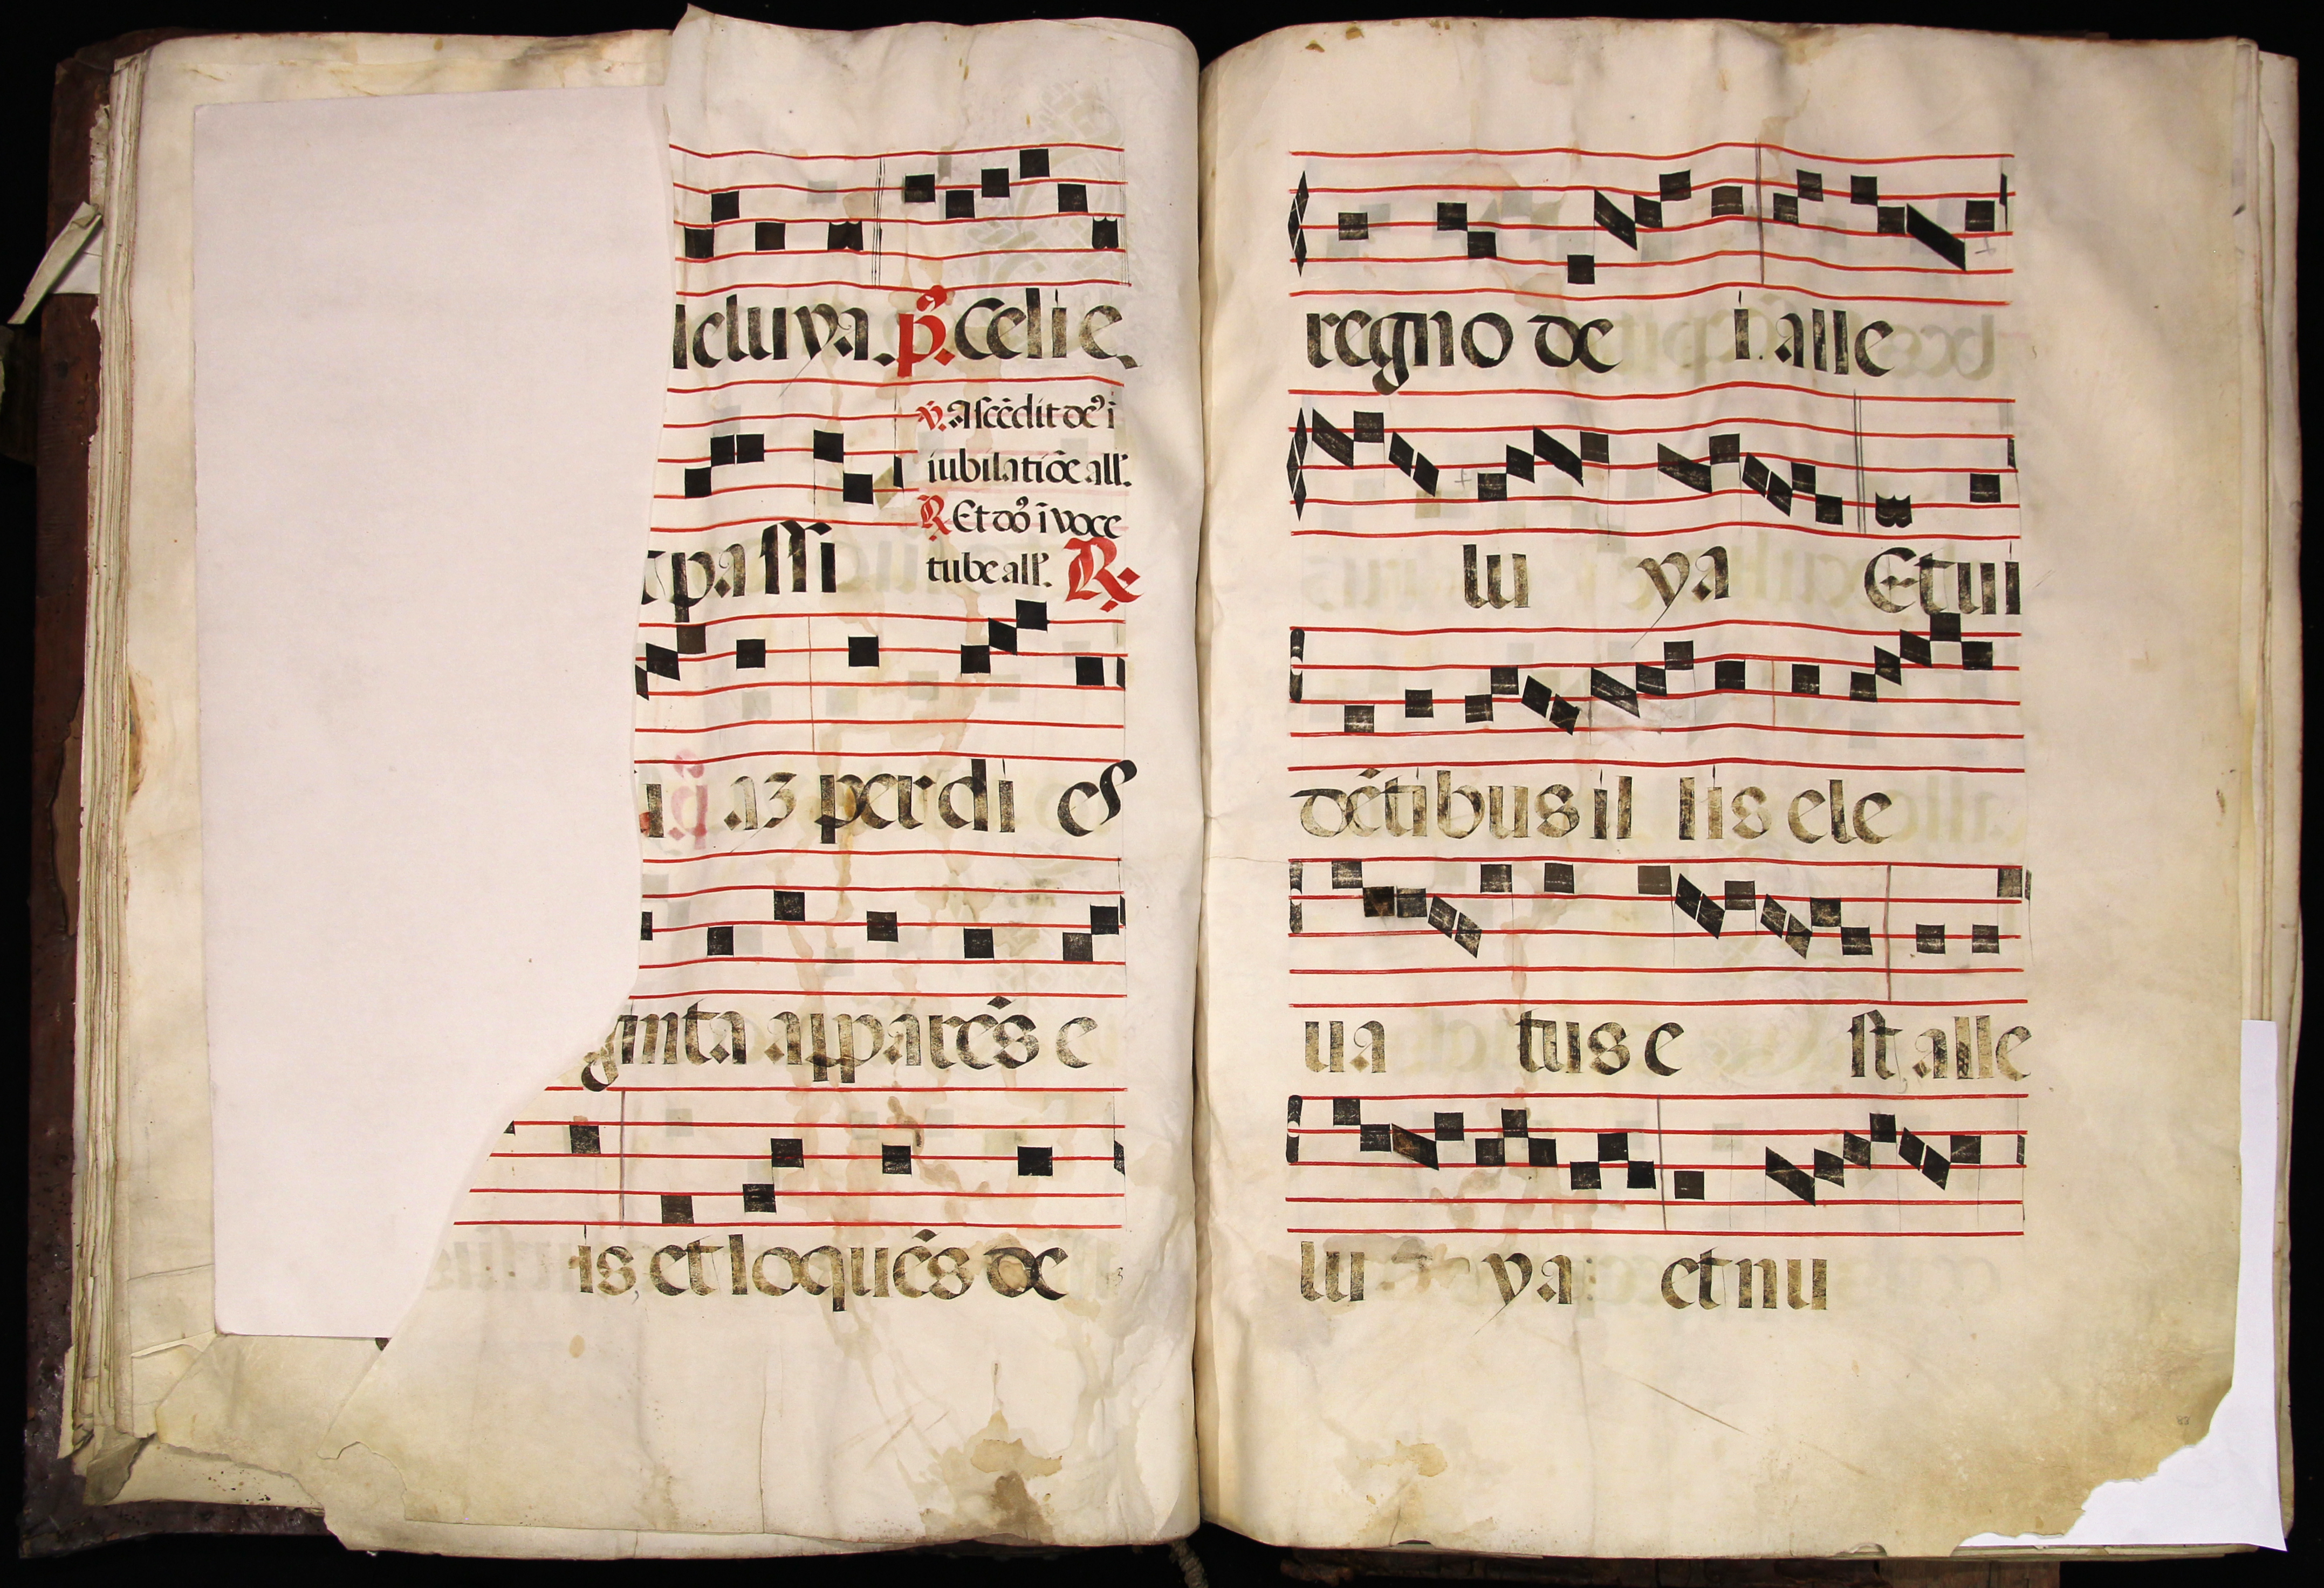 leluya. p̄. Celi e
v. Ascēdit de9 ī
iubilatiōe all'.
R Et dō9 ī voce
tube all'. R.
t passi
az per di es
ginta apparēs e
is, et loquēs de
regno de i. alle
lu ya Et ui
dētibus il lis ele
ua tus e st alle
lu ya et nu